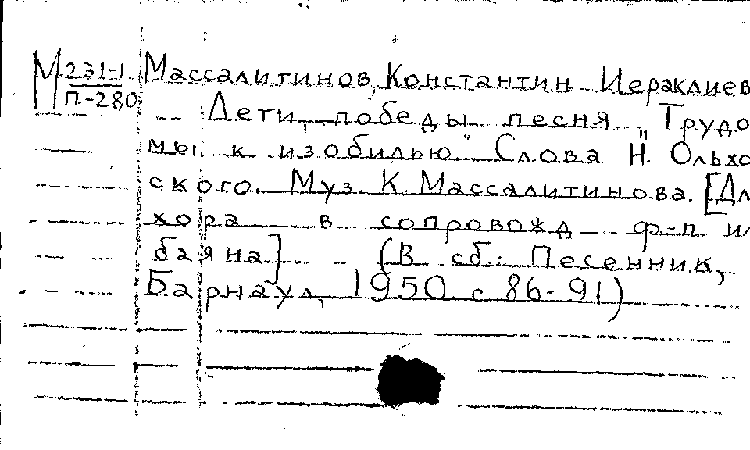 М 231-1 Массалитинов, Константин Иераклиев
П-280 Дети победы песня „Трудо
мы к изобилью" Слова Н. Ольхо
ского. Муз. К. Массалитинова. [Дл
хора в сопровожд ф-п ил
баяна] - (В сб: Песенник,
Барнаул, 1950 с 86-91)